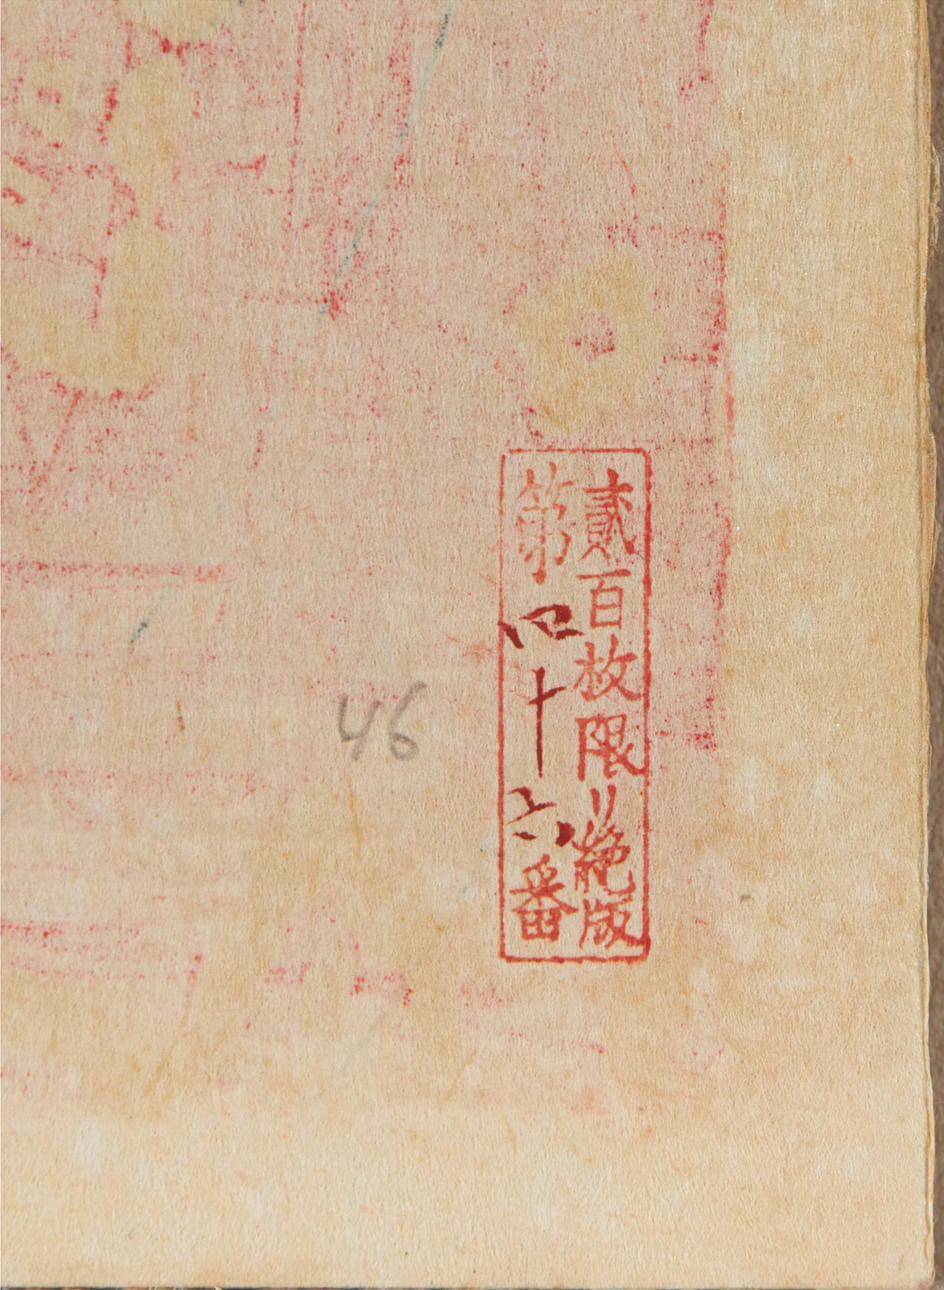 貳百枚限リ絶版
第四十六番
46